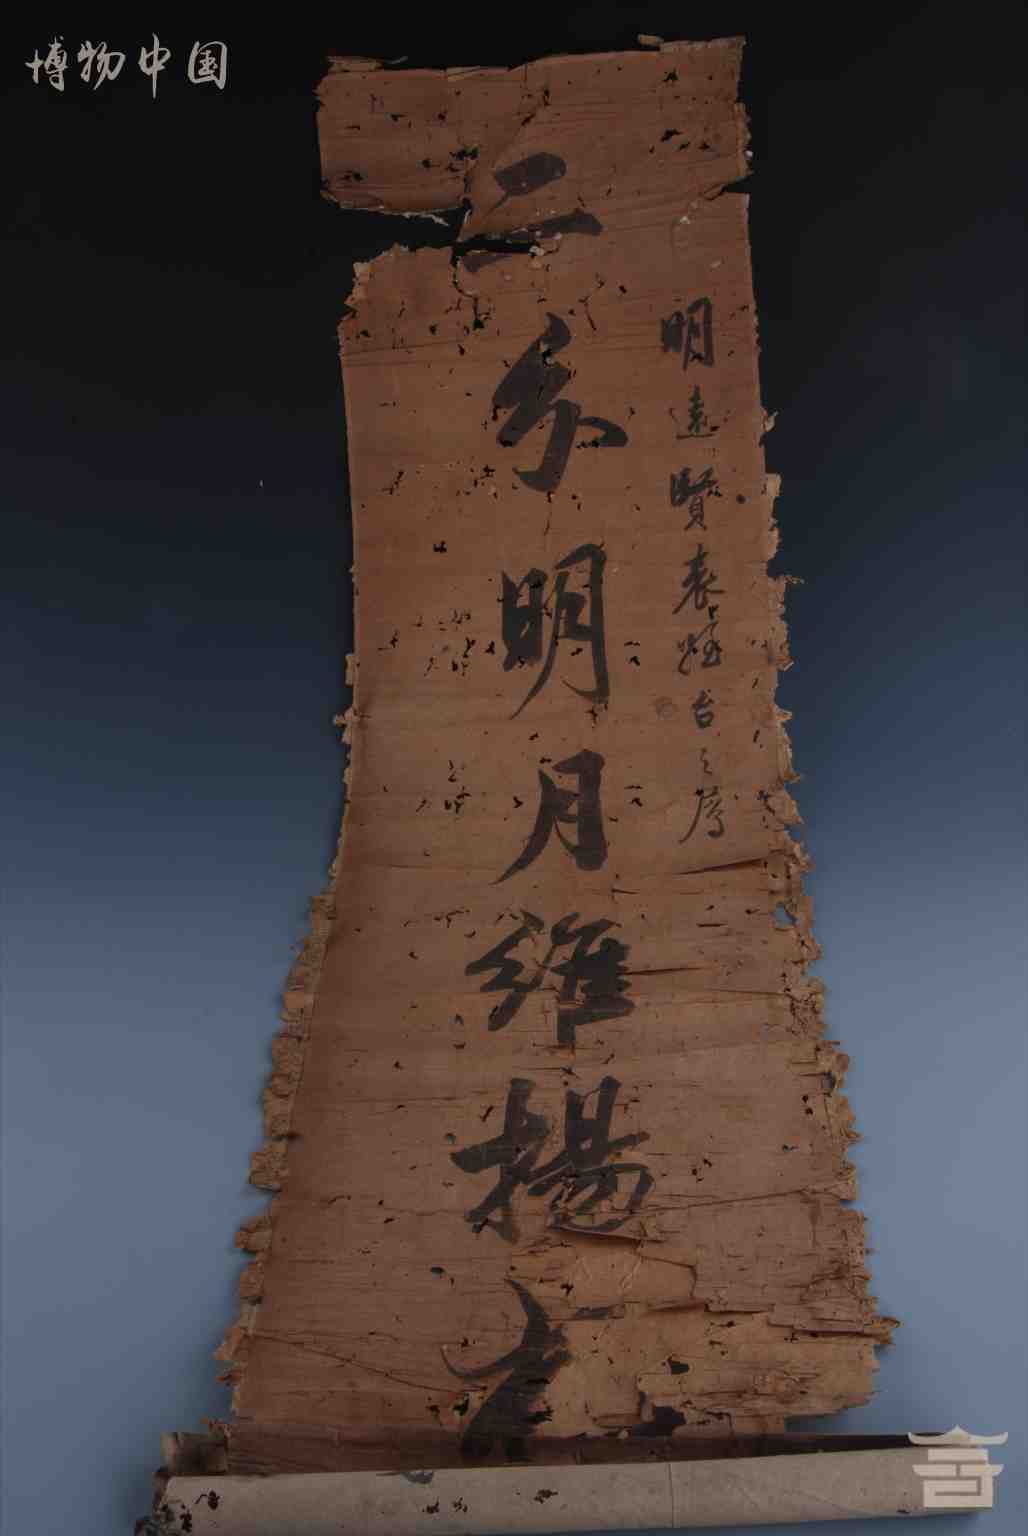 博物中国
明遠賢表姪台之属
二分明月維揚